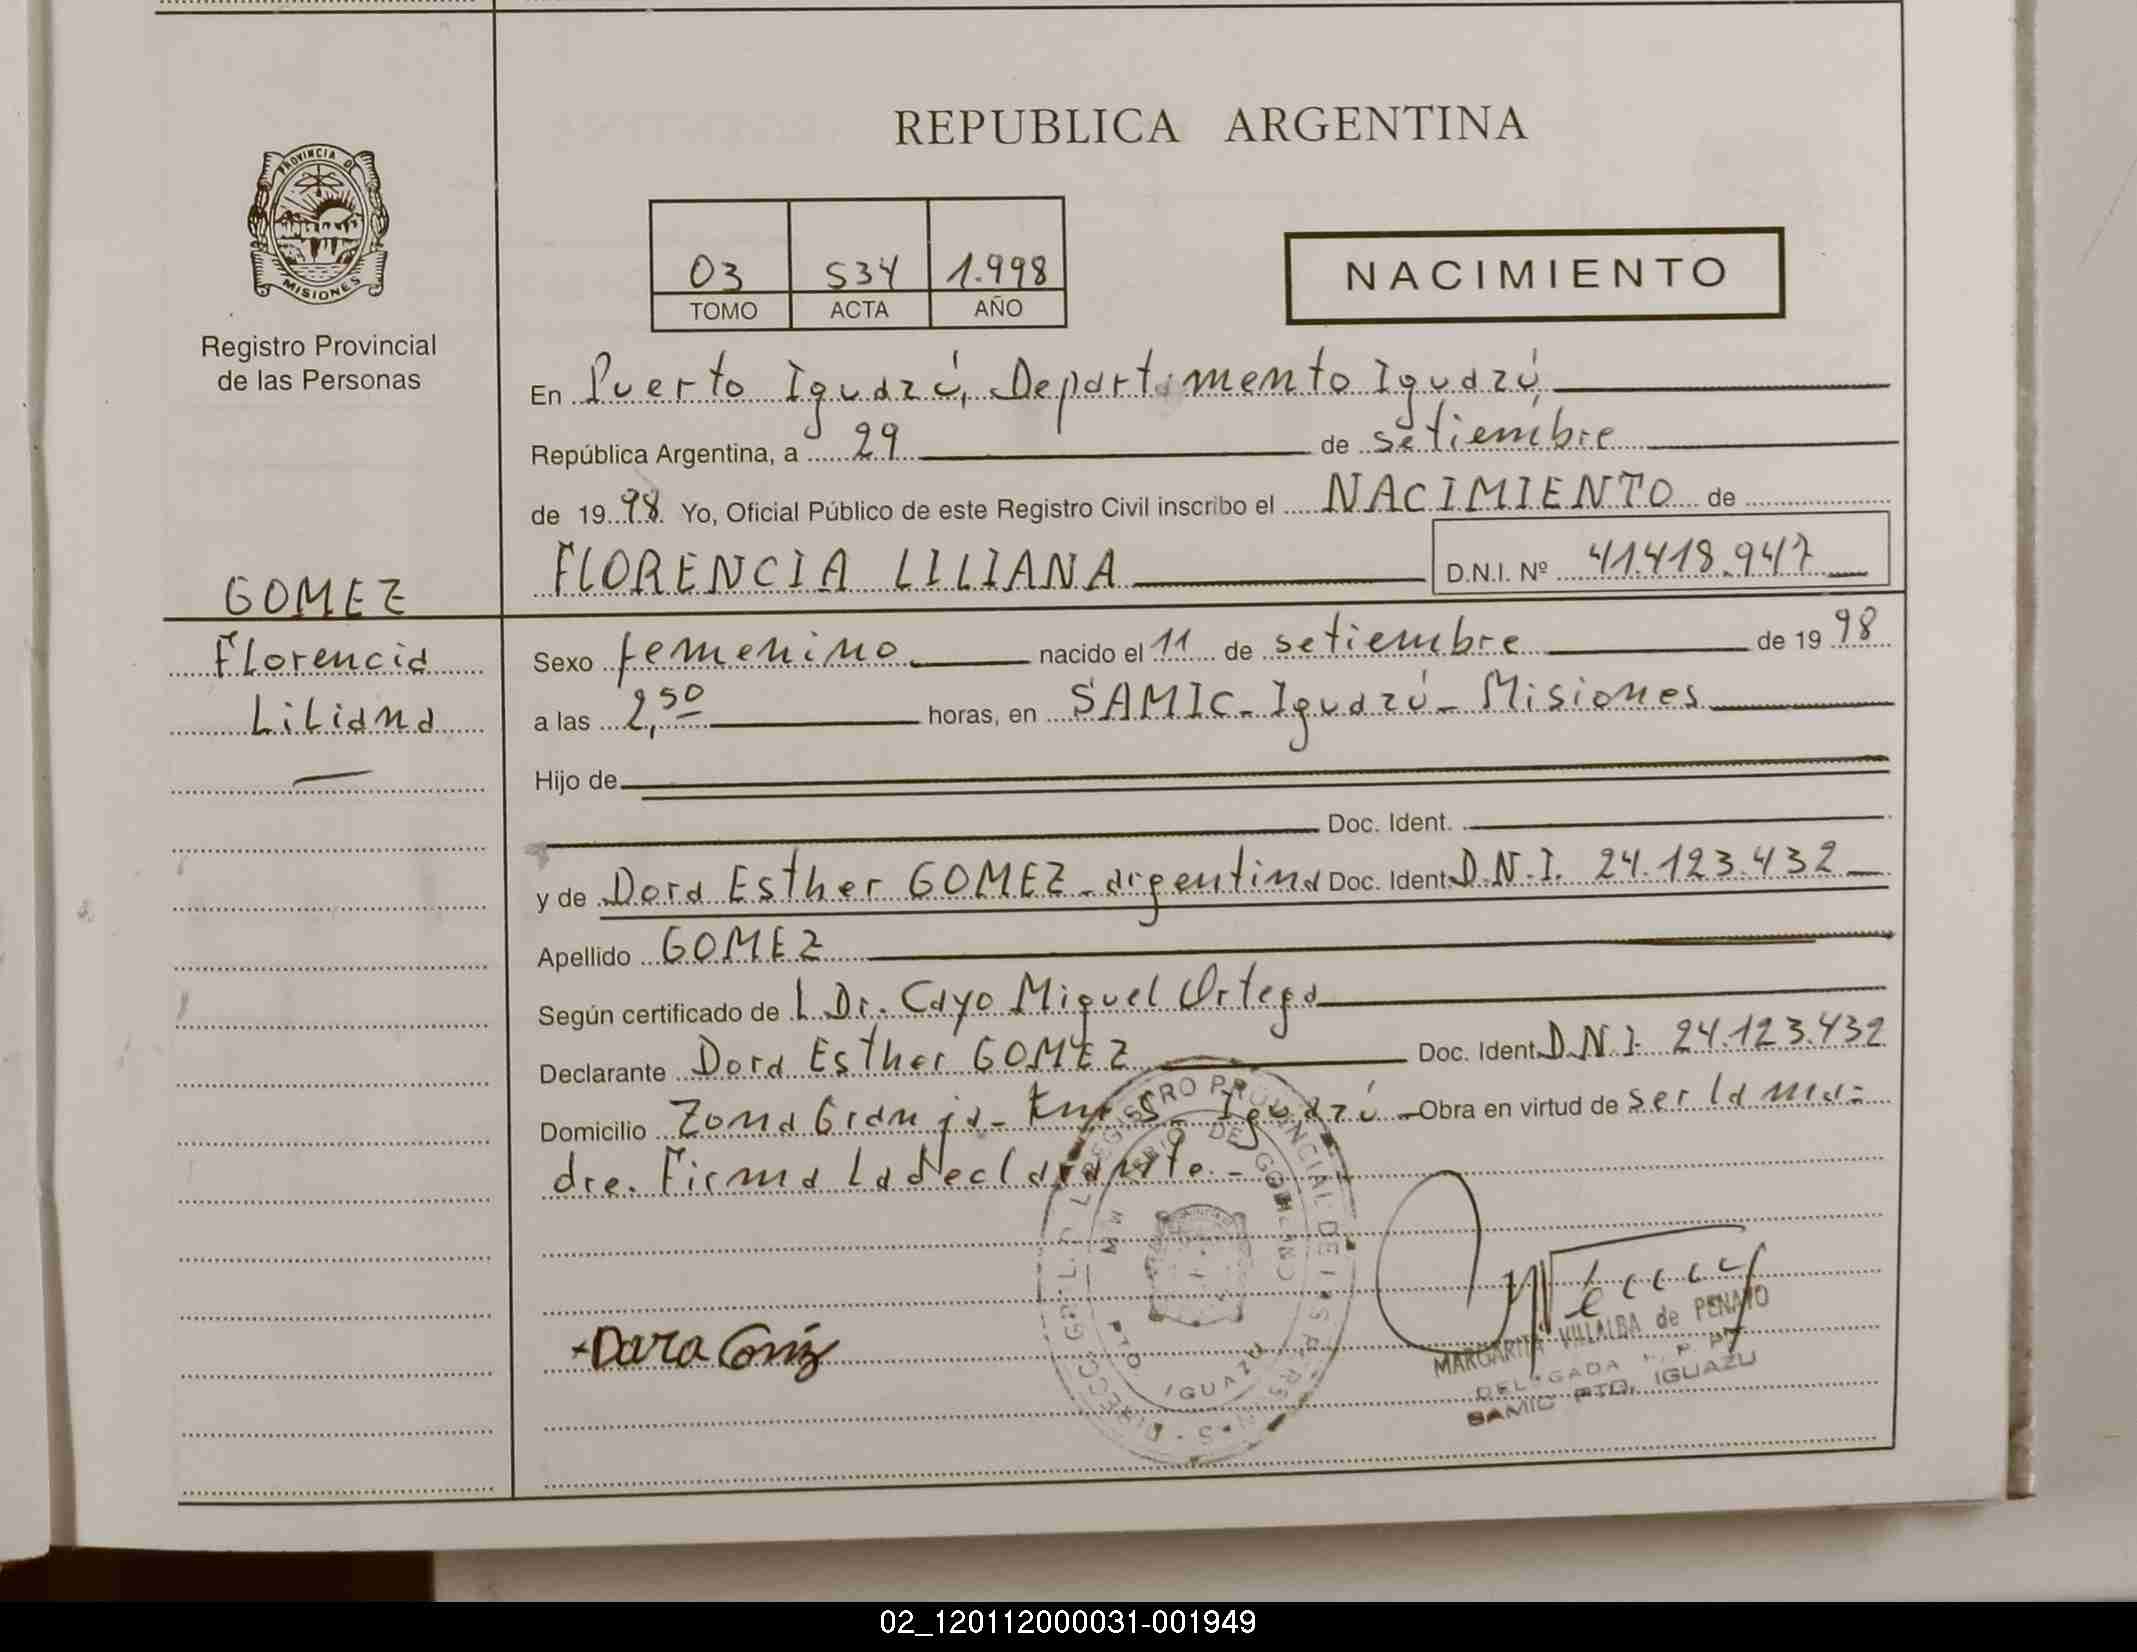 REPUBLICA ARGENTINA
PROVINCIA DE
MISIONES
Registro Provincial
de las Personas
03 534 1.998
TOMO ACTA AÑO
NACIMIENTO
En Puerto Iguazú, Departamento Iguazú
República Argentina, a 29 de setiembre
de 1998 Yo, Oficial Público de este Registro Civil inscribo el NACIMIENTO de
FLORENCIA LILIANA D.N.I. Nº 41.418.947
GOMEZ
Florencia
Liliana
Sexo femenino nacido el 11 de setiembre de 1998
a las 2,50 horas, en SAMIC - Iguazú - Misiones
Hijo de
Doc. Ident.
y de Dora Esther GOMEZ - argentina Doc. Ident. D.N.I. 24.123.432
Apellido GOMEZ
Según certificado de L Dr. Cayo Miguel Ortega
Declarante Dora Esther GOMEZ Doc. Ident. D.N.I. 24.123.432
Domicilio Zona Granja - Iguazú - Obra en virtud de ser la ma=
dre. Firma La declarante. -
REGISTRO PROVINCIAL DE LAS PERSONAS
DE GOBIERNO
PTO IGUAZU
Dora
MARGARITA VILLALBA de PENAYO
DELEGADA
SAMIC PTO. IGUAZU
02_120112000031-001949